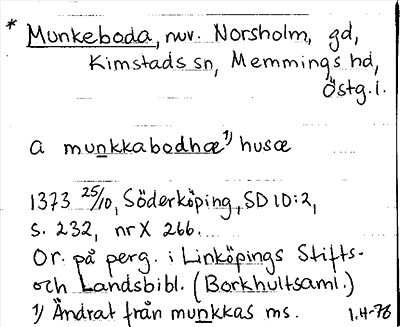 * Munkeboda, nuv. Norsholm, gd,
Kimstads sn, Memmings hd,
Östg.l.
a munkkabodhæ¹⁾ husæ
1373 25/10, Söderköping, SD 10:2,
s. 232, nr X 266.
Or. på perg. i Linköpings Stifts-
och Landsbibl. (Borkhultsaml.)
1) Ändrat från munkkas ms. 1.4-76